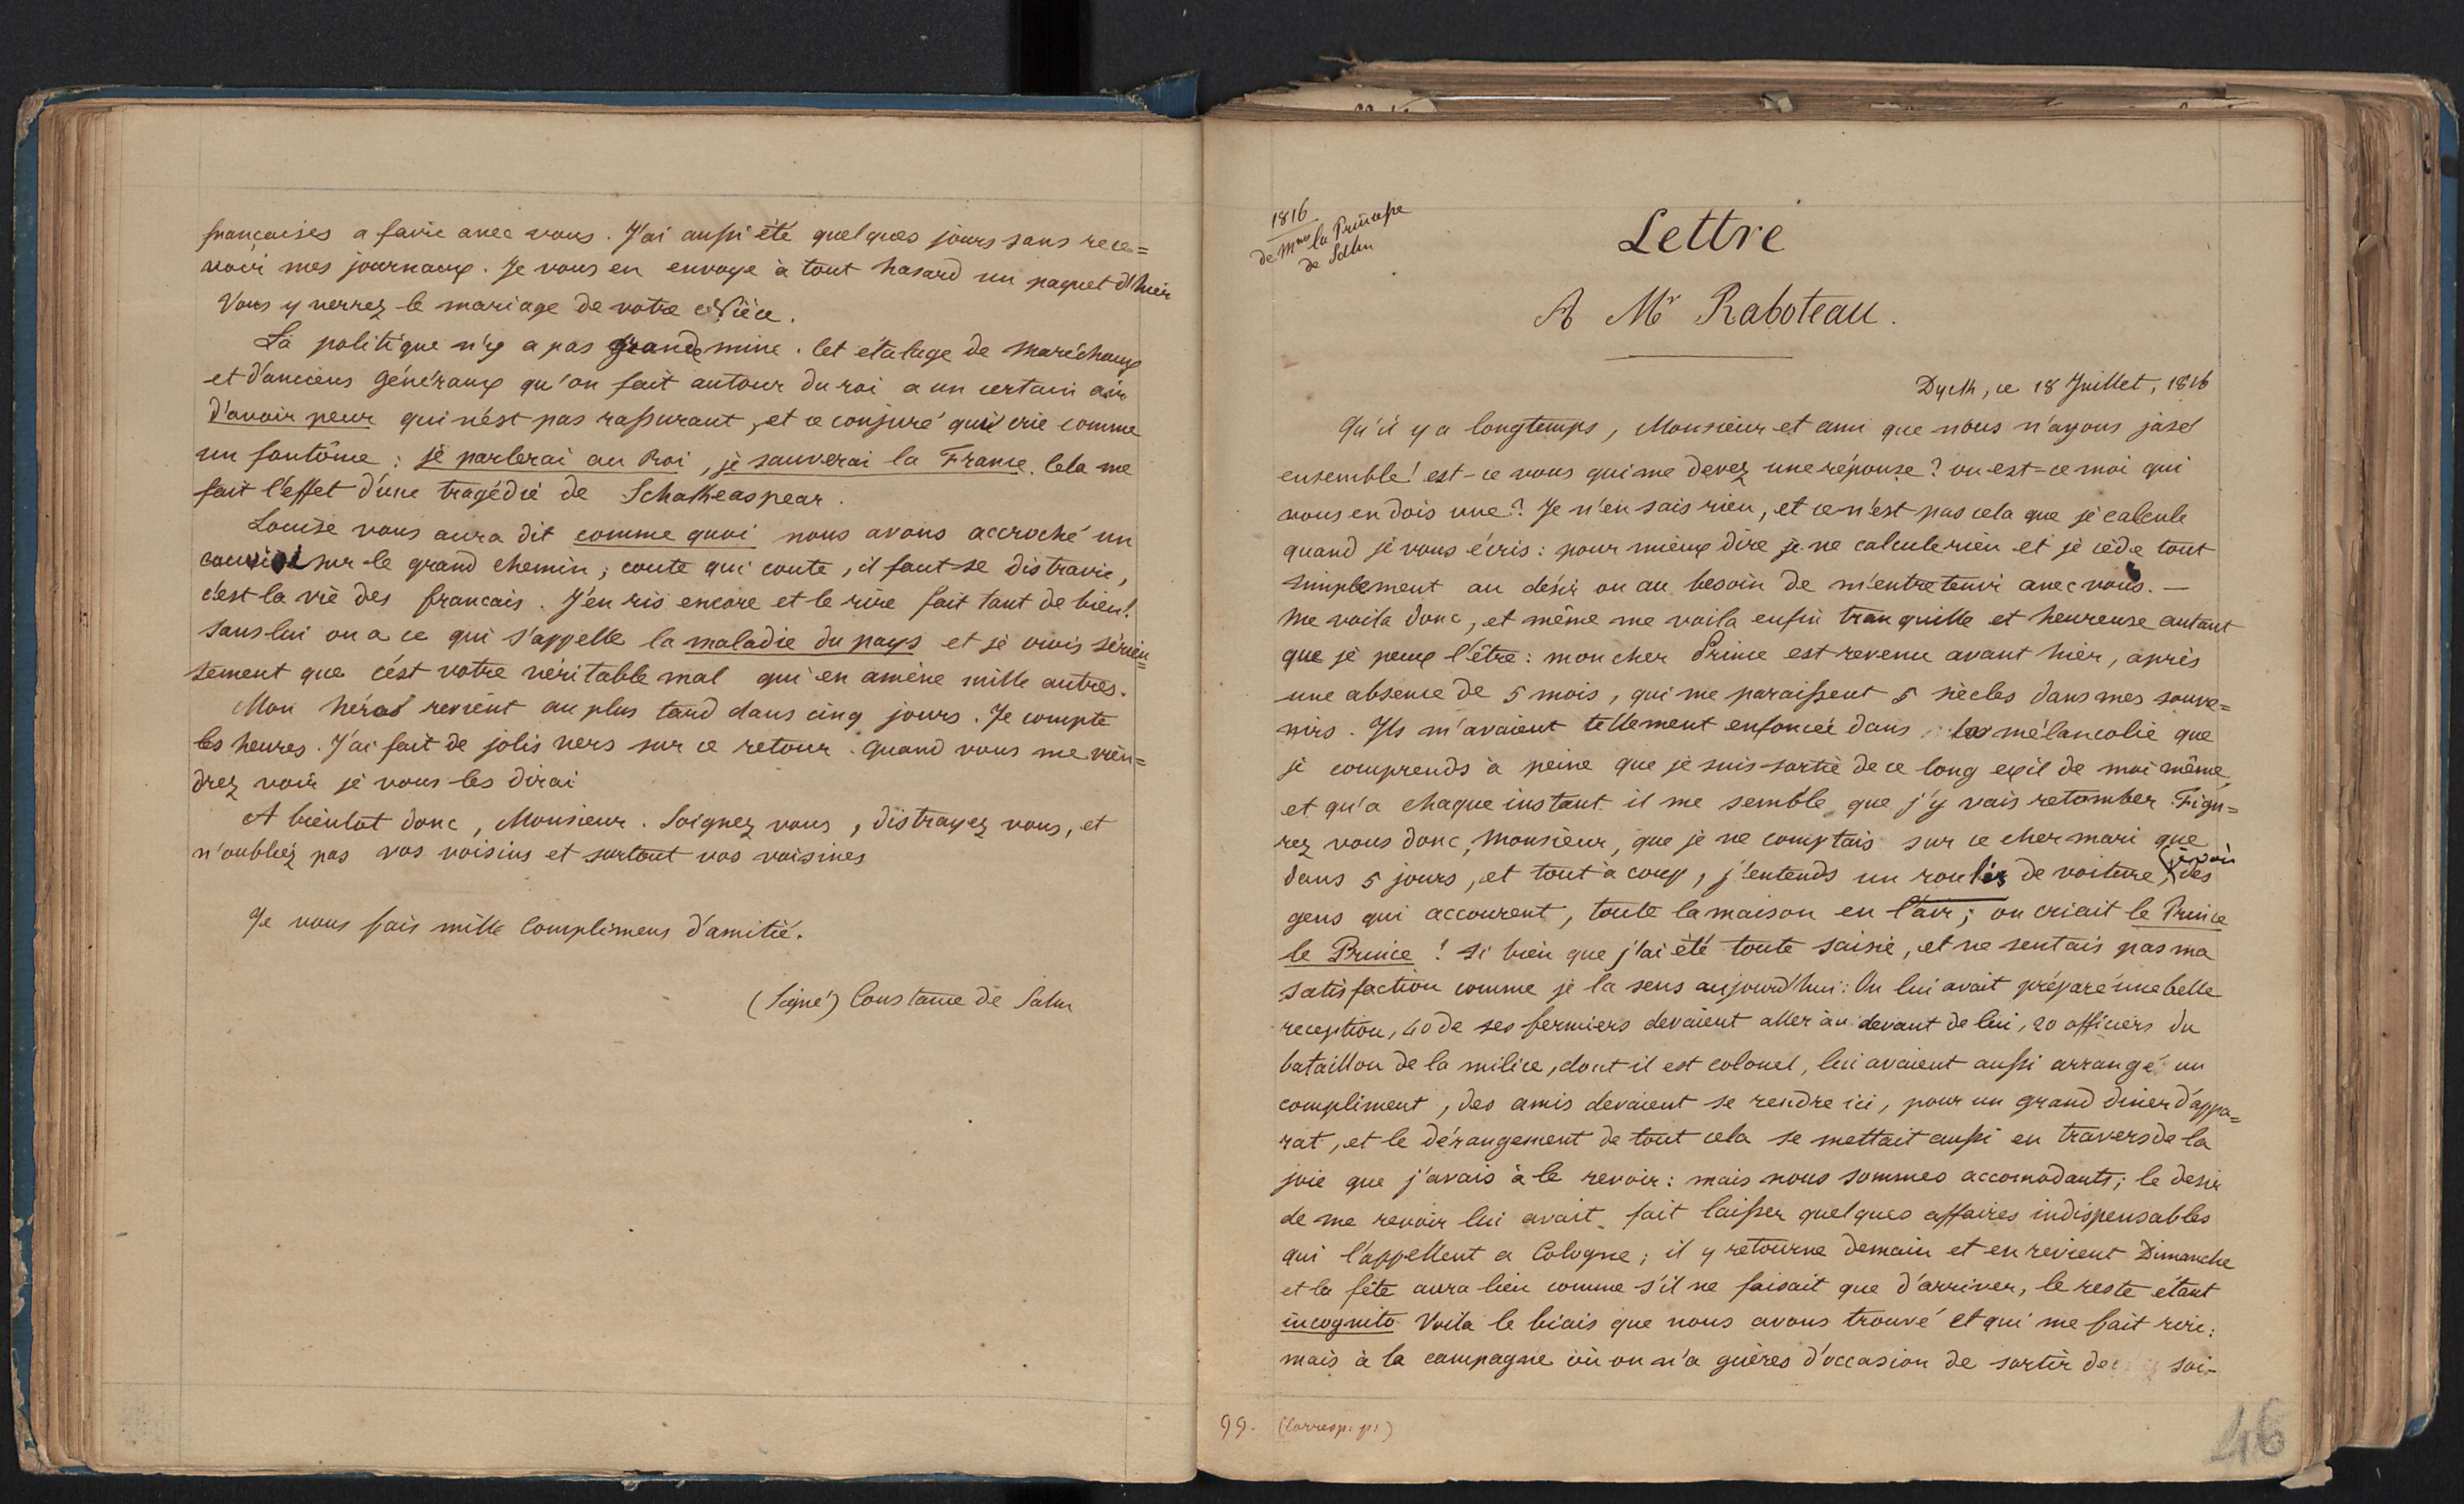 françaises a faire avec vous. J'ai aussi été quelques jours sans rece=
voir mes journaux. Je vous en envoye à tout hasard un paquet d'hier
Vous y verrez le mariage de votre Nièce.
La politique n'y a pas grande mine. Cet étalage de maréchaux
et d'anciens généraux qu'on fait autour du roi a un certain air
d'avoir peur qui n'est pas rassurant, et ce conjuré qui crie comme
un fantôme : je parlerai au Roi, je sauverai la France. Cela me
fait l'effet d'une tragédie de Schakeaspear.
Louise vous aura dit comme quoi nous avons accroché un
sur le grand chemin; coute qui coute, il faut se distraire,
c'est la vie des francais. J'en ris encore et le rire fait tant de bien!
sans lui on a ce qui s'appelle la maladie du pays et je crois sérieu=
sement que c'est votre véritable mal qui en amène mille autres.
Mon héros revient au plus tard dans cinq jours. Je compte
les heures. J'ai fait de jolis vers sur ce retour. quand vous me vien=
drez voir je vous les dirai
A bientot donc, Monsieur. Soignez vous, distrayez vous, et
n'oubliez pas vos voisins et surtout vos voisines
Je vous fais mille complimens d'amitié.
(Signé) Constance de Salm
1816
de Mme la Princesse
de Salm
Lettre
A Mr Raboteau.
Dyck, ce 18 Juillet, 1816
Qu'il y a longtemps, Monsieur et ami que nous n'ayons jasé
ensemble! est-ce vous qui me devez une réponse? ou est=ce moi qui
vous en dois une? Je n'en sais rien, et ce n'est pas cela que je calcule
quand je vous écris : pour mieux dire je ne calcule rien et je cède tout
simplement au désir ou au besoin de m'entretenir avec vous. —
me voila donc, et même me voila enfin tranquille et heureuse autant
que je peux l'être : mon cher Prince est revenu avant hier, après
une absence de 5 mois, qui me paraissent 5 siècles dans mes souve=
nirs. Ils m'avaient tellement enfoncée dans la mélancolie que
je comprends à peine que je suis sortie de ce long exil de moi même,
et qu'a chaque instant il me semble que j'y vais retomber. Figu=
rez vous donc, Monsieur, que je ne comptais sur ce cher mari que
dans 5 jours, et tout à coup, j'entends un roulis de voiture, (je vois
des
gens qui accourent, toute la maison en l'air; on criait le Prince
le Prince ! Si bien que j'ai été toute saisie, et ne sentais pas ma
satisfaction comme je la sens aujourd'hui : On lui avait préparé une belle
reception, 40 de ses fermiers devaient aller au devant de lui, 20 officiers du
bataillon de la milice, dont il est colonel, lui avaient aussi arrangé un
compliment, des amis devaient se rendre ici, pour un grand diner d'appa=
rat, et le dérangement de tout cela se mettait aussi en travers de la
joie que j'avais à le revoir : mais nous sommes accomodants; le desir
de me revoir lui avait fait laisser quelques affaires indispensables
qui l'appellent a Cologne; il y retourne demain et en revient Dimanche
et la fête aura lieu comme s'il ne faisait que d'arriver, le reste étant
incognito Voila le biais que nous avons trouvé et qui me fait rire :
mais à la campagne où on n'a guères d'occasion de sortir de soi-
99. (Corresp. pi)
46